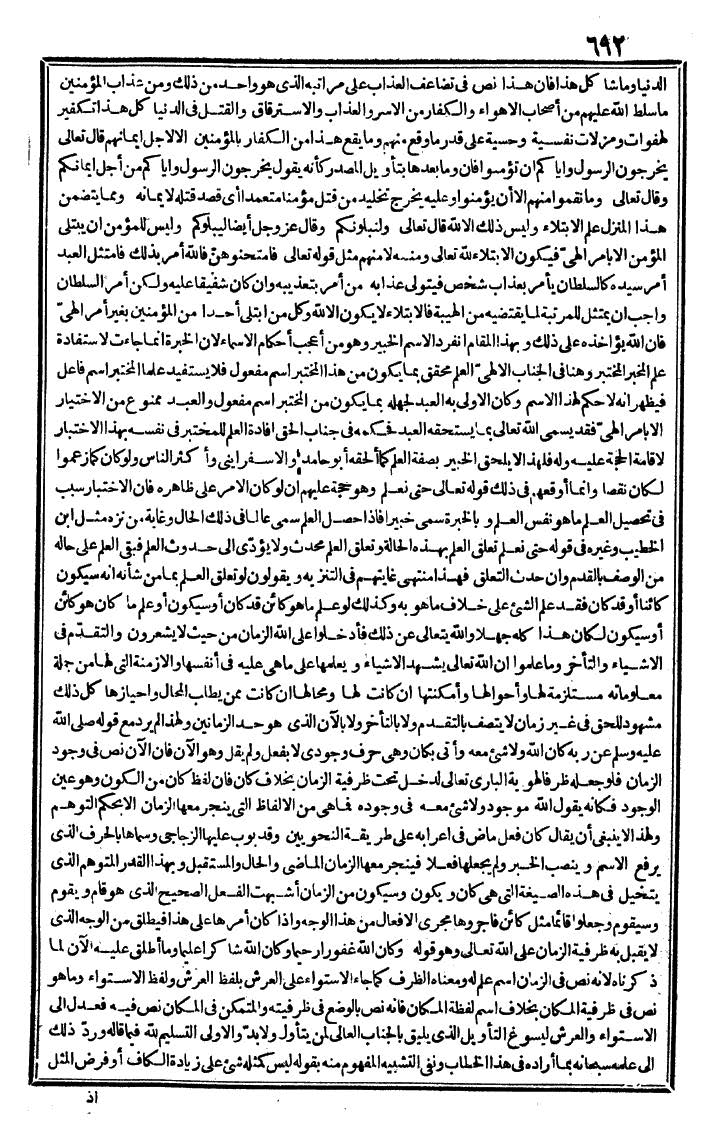 ٦٩٢
الدنيا وما شاكل هذا فان هذا نص فى تضاعف العذاب على مراتبه الذى هو واحد من ذلك ومن عذاب المؤمنين
ما سلط الله عليهم من أصحاب الاهواء والكفار من الاسر والعذاب والاسترقاق والقتل فى الدنيا كل هذا تكفير
لهفوات ومزلات نفسية وحسية على قدر ما وقع منهم وما يقع هذا من الكفار بالمؤمنين الا لاجل ايمانهم قال تعالى
يخرجون الرسول واياكم ان تؤمنوا فان وما بعدها بتأويل المصدر كأنه يقول يخرجون الرسول واياكم من أجل ايمانكم
وقال تعالى وما نقموا منهم الا أن يؤمنوا وعليه يخرج تخليد من قتل مؤمنا متعمدا أى قصد قتله لايمانه ومما يتضمن
هذا المنزل علم الابتلاء وليس ذلك الا لله قال تعالى ولنبلونكم وقال عز وجل أيضا ليبلوكم وليس للمؤمن ان يبتلى
المؤمن الا بامر الهىّ فيكون الابتلاء لله تعالى ومنه لا منهم مثل قوله تعالى فامتحنوهنّ فالله أمر بذلك فامتثل العبد
أمر سيده كالسلطان يأمر بعذاب شخص فيتولى عذابه من أمر بتعذيبه وان كان شفيقا عليه ولكن أمر السلطان
واجب ان يمتثل للمرتبة لما يقتضيه من الهيبة فالابتلاء لا يكون الا لله وكل من ابتلى أحدا من المؤمنين بغير أمر الهىّ
فان الله يؤاخذه على ذلك وبهذا المقام انفرد الاسم الخبير وهو من أعجب أحكام الاسماء لان الخبرة انما جاءت لاستفادة
علم المخبر المختبر وهنا فى الجناب الالهىّ العلم محقق بما يكون من هذا المختبر اسم مفعول فلا يستفيد علما المختبر اسم فاعل
فيظهر انه لا حكم لهذا الاسم وكان الاولى به العبد لجهله بما يكون من المختبر اسم مفعول والعبد ممنوع من الاختبار
الا بامر الهىّ فقد يسمى الله تعالى بما يستحقه العبد فحكمه فى جناب الحق افادة العلم للمختبر فى نفسه بهذا الاختبار
لاقامة الحجة عليه وله فلهذا الا يلحق الخبير بصفة العلم كما ألحقه أبو حامد والاسفراينى وأكثر الناس ولو كان كما زعموا
لكان نقصا وانما أوقعهم فى ذلك قوله تعالى حتى نعلم وهو حجة عليهم ان لو كان الامر على ظاهره فان الاختبار سبب
فى تحصيل العلم ما هو نفس العلم وبالخبرة سمى خبيرا فاذا حصل العلم سمى عالما فى ذلك الحال وغاية من نزه مثل ابن
الخطيب وغيره فى قوله حتى نعلم تعلق العلم بهذه الحالة وتعلق العلم محدث ولا يؤدّى الى حدوث العلم فبقى العلم على حاله
من الوصف بالقدم وان حدث التعلق فهذا منتهى غايتهم فى التنزيه ويقولون لو تعلق العلم بما من شأنه انه سيكون
كائنا أو قد كان فقد علم الشئ على خلاف ما هو به وكذلك لو علم ما هو كائن قد كان أو سيكون أو علم ما كان هو كائن
أو سيكون لكان هذا كله جهلا والله يتعالى عن ذلك فأدخلوا على الله الزمان من حيث لا يشعرون والتقدّم فى
الاشياء والتأخر وما علموا ان الله تعالى يشهد الاشياء ويعلمها على ما هى عليه فى أنفسها والازمنة التى لها من جملة
معلوماته مستلزمة لها وأحوالها وأمكنتها ان كانت لها ومحالها ان كانت ممن يطلب المحال واحيازها كل ذلك
مشهود للحق فى غير زمان لا يتصف بالتقدم ولا بالتأخر ولا بالآن الذى هو حد الزمانين ولهذا لم يرد مع قوله صلى الله
عليه وسلم عن ربه كان الله ولا شئ معه وأتى بكان وهى حرف وجودى لا بفعل ولم يقل وهو الآن فان الآن نص فى وجود
الزمان فلو جعله ظرفا لهوية البارى تعالى لدخل تحت ظرفية الزمان بخلاف كان فان لفظ كان من الكون وهو عين
الوجود فكأنه يقول الله موجود ولا شئ معه فى وجوده فما هى من الالفاظ التى ينجر معها الزمان الا بحكم التوهم
ولهذا لا ينبغى أن يقال كان فعل ماض فى اعرابه على طريقة النحويين وقد بوب عليها الزجاجى وسماها بالحرف الذى
يرفع الاسم وينصب الخبر ولم يجعلها فعلا فينجر معها الزمان الماضى والحال والمستقبل وبهذا القدر المتوهم الذى
يتخيل فى هذه الصيغة التى هى كان ويكون وسيكون من الزمان أشبهت الفعل الصحيح الذى هو قام ويقوم
وسيقوم وجعلوا قائما مثل كائن فاجروها مجرى الافعال من هذا الوجه واذا كان أمرها على هذا فيطلق من الوجه الذى
لا يقبل به ظرفية الزمان على الله تعالى وهو قوله وكان الله غفورا رحيما وكان الله شاكرا عليما وما أطلق عليه الآن لما
ذكرناه لانه نص فى الزمان اسم علم له ومعناه الظرف كما جاء الاستواء على العرش بلفظ العرش ولفظ الاستواء وما هو
نص فى ظرفية المكان بخلاف اسم لفظة المكان فانه نص بالوضع فى ظرفيته والمتمكن فى المكان نص فيه فعدل الى
الاستواء والعرش ليسوغ التأويل الذى يليق بالجناب العالى لمن يتأول ولابدّ والاولى التسليم لله فيما قاله وردّ ذلك
الى علمه سبحانه بما أراده فى هذا الخطاب ونفى التشبيه المفهوم منه بقوله ليس كمثله شئ على زيادة الكاف أو فرض المثل
اذ